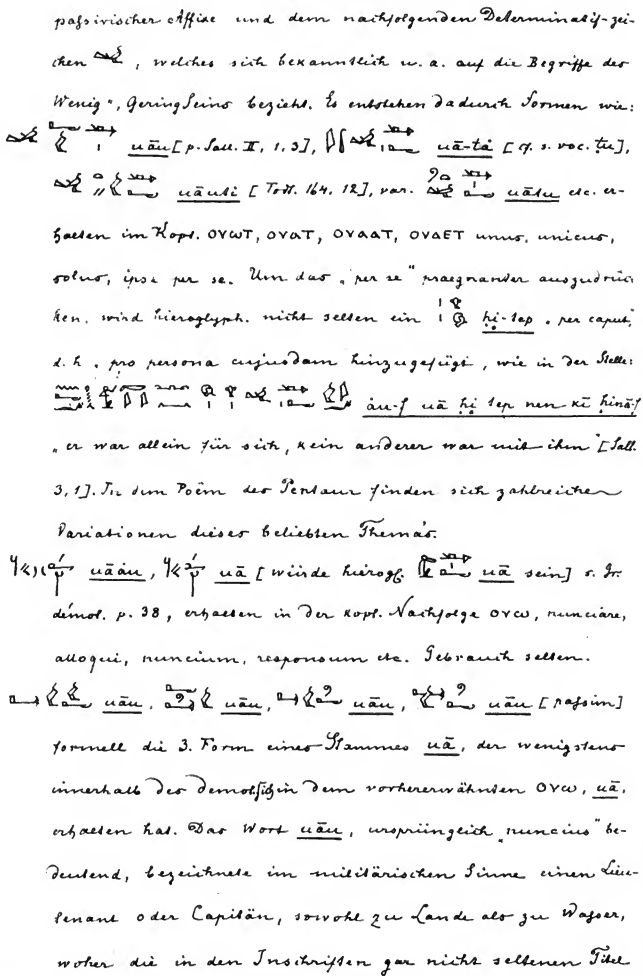 paſsivischer Affixe und dem nachfolgenden Determinatif-zei-
chen , welches sich bekanntlich u. a. auf die Begriffe des
Wenig", Gering Seins bezieht. Es entstehen dadurch Formen wie:
uāu [p. Sall. II, 1, 3], uā-tȧ [cf. s. voc. ṭu],
uāuti [Todt. 164, 12], var. uātu etc. er-
halten im Kopt. ΟΥⲰΤ, ΟΥΑΤ, ΟΥΑΑΤ, ΟΥΑΕΤ unus, unicus,
solus, ipse per se. Um das „per se" praegnanter auszudrü-
ken, wird hieroglyph. nicht selten ein ḥi-tep „per caput",
d. h. „pro persona cujusdam hinzugefügt, wie in der Stelle:
ȧu-f uā ḥi tep nen kī ḥinā-f
„er war allein für sich, kein anderer war mit ihm" [Sall.
3, 1]. In dem Poëm des Pentaur finden sich zahlreiche
Variationen dieses beliebten Thema's.
uāȧu, uā [würde hierogl. uā sein] s. Gr.
démot. p. 38, erhalten in der kopt. Nachfolge ΟΥⲰ, nunciare,
alloqui, nuncium, responsum etc. Gebrauch selten.
uāu, uāu, uāu, uāu [paſsim]
formell die 3. Form eines Stammes uā, der wenigstens
innerhalb des demotischen in dem vorhererwähnten ΟΥⲰ, uā,
erhalten hat. Das Wort uāu, ursprünglich „nuncius" be-
deutend, bezeichnete im militärischen Sinne einen Lieu-
tenant oder Capitän, sowohl zu Lande als zu Waſser,
woher die in den Inschriften gar nicht seltenen Titel